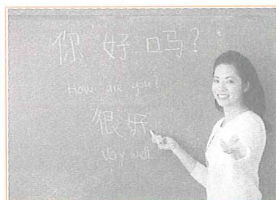 你好吗?
How are you?
很好
Very well